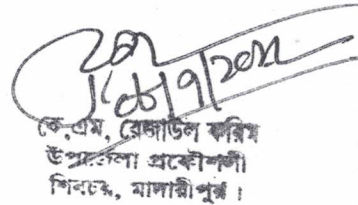 কে, এম, রেজাউল করিম
উপজেলা প্রকৌশলী
শিবচর, মাদারীপুর।